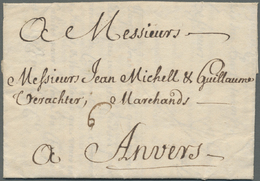 A Messieurs
Messieurs Jean Michell & Guillaume
Verachter, Marchands
6
A Anvers